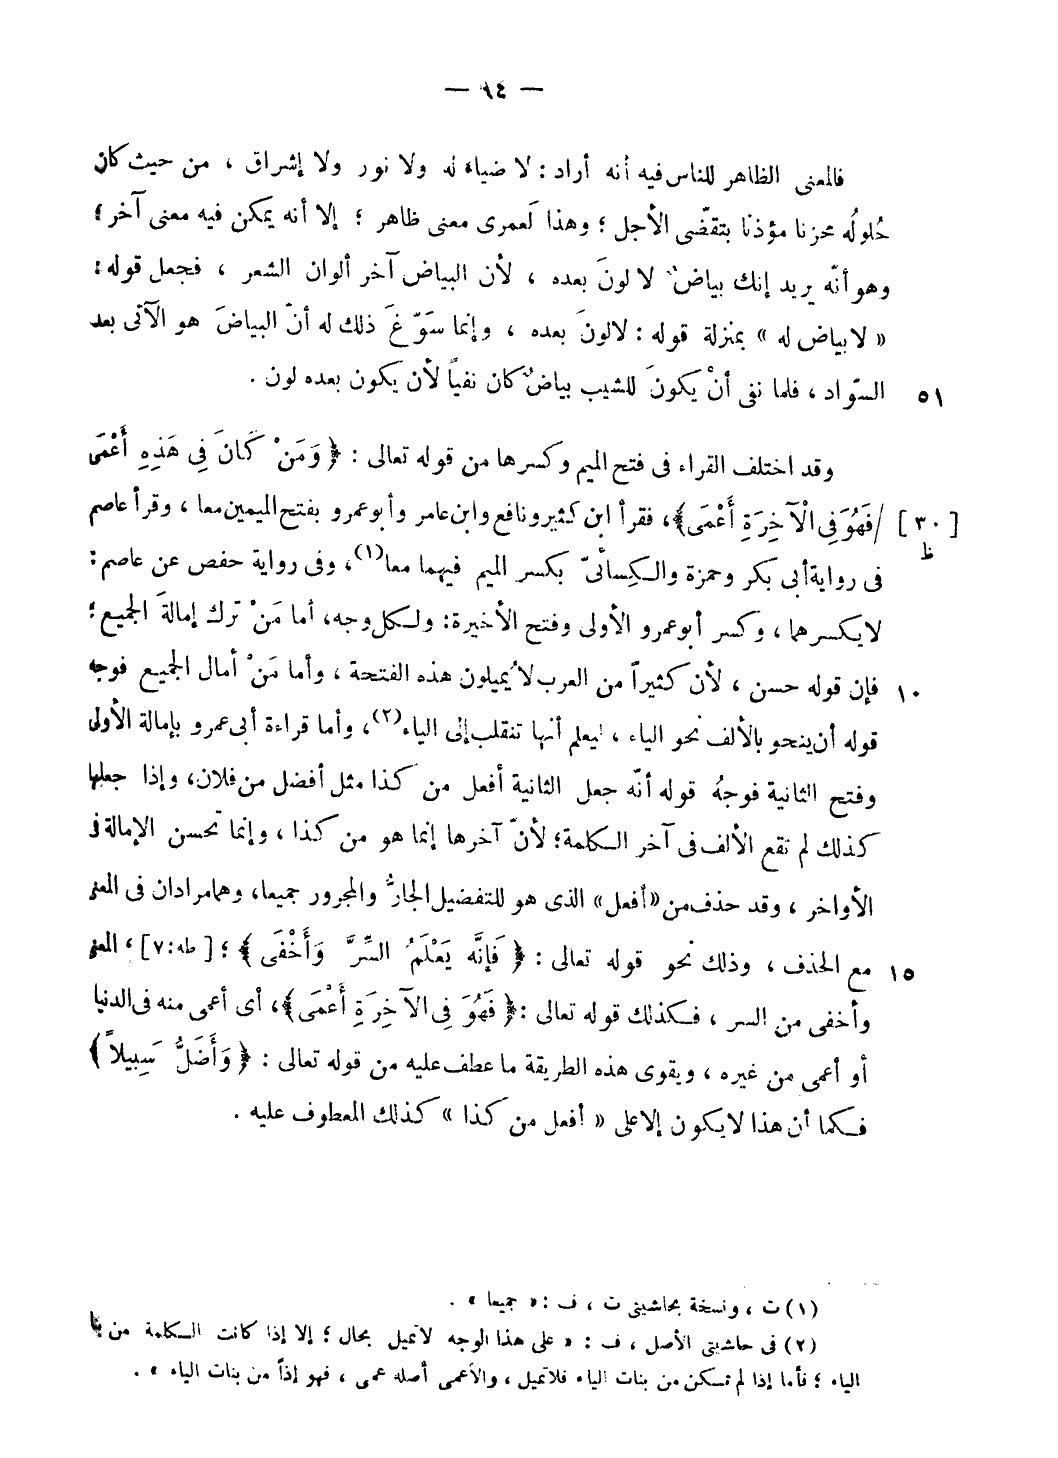 — ٩٤ —
فالمعنى الظاهر للناس فيه أنه أراد : لا ضياء له ولا نور ولا إشراق ، من حيث كان
حُلولُه محزنا مؤذنا بتقضّى الأجل ؛ وهذا لَعمرى معنى ظاهر ؛ إلا أنه يمكن فيه معنى آخر ؛
وهو أنّه يريد إنك بياضٌ لا لونَ بعده ، لأن البياض آخر ألوان الشعر ، فجعل قوله :
« لا بياض له » بمنزلة قوله : لا لونَ بعده ، وإنما سَوّغَ ذلك له أنّ البياضَ هو الآتى بعد
٥١ السّواد ، فلما نفى أنْ يكونَ للشيب بياضٌ كان نفياً لأن يكون بعده لون .
وقد اختلف القراء فى فتح الميم وكسرها من قوله تعالى : ﴿ وَمَنْ كَانَ فِى هَذِهِ أَعْمَى
[ ٣٠ ظ ] / فَهُوَ فِى الْآخِرَةِ أَعْمَى ﴾، فقرأ ابن كثير ونافع وابن عامر وأبو عمرو بفتح الميمين معا ، وقرأ عاصم
فى رواية أبى بكر وحمزة والكِسائىّ بكسر الميم فيهما معا(١)، وفى رواية حفص عن عاصم :
لا يكسرهما ، وكسر أبو عمرو الأولى وفتح الأخيرة : ولكل وجه، أما مَنْ ترك إمالةَ الجميع ؛
١٠ فإن قوله حسن ، لأن كثيراً من العرب لا يُميلون هذه الفتحة ، وأما مَنْ أمال الجميع فوجه
قوله أن ينحو بالألف نحو الياء ، ليعلم أنها تنقلب إلى الياء(٢)، وأما قراءة أبى عمرو بإمالة الأولى
وفتح الثانية فوجهُ قوله أنّه جعل الثانية أفعل من كذا مثل أفضل من فلان، وإذا جعلها
كذلك لم تقع الألف فى آخر الكلمة؛ لأنّ آخرها إنما هو من كذا ، وإنما تحسن الإمالة فى
الأواخر ، وقد حذف من «أفعل» الذى هو للتفضيل الجارُّ والمجرور جميعا، وهما مرادان فى المعنى
١٥ مع الحذف ، وذلك نحو قوله تعالى : ﴿ فَإِنَّه يَعْلَمُ السِّرَّ وَأَخْفَى ﴾ ؛ [ طه:٧] ، المعنى
وأخفى من السر ، فكذلك قوله تعالى :﴿ فَهُوَ فِى الآخِرَةِ أَعْمَى ﴾، أى أعمى منه فى الدنيا
أو أعمى من غيره ، ويقوى هذه الطريقة ما عطف عليه من قوله تعالى : ﴿ وَأَضَلُّ سَبِيلاً ﴾
فكما أن هذا لا يكون إلا على « أفعل من كذا » كذلك المعطوف عليه .
(١) ت ، ونسخة بحاشيتى ت ، ف : « جميعا » .
(٢) فى حاشيتى الأصل ، ف : « على هذا الوجه لا تميل بحال ؛ إلا إذا كانت الكلمة من بنات
الياء ؛ فأما إذا لم تسكن من بنات الياء فلا تميل ، والأعمى أصله عمى ، فهو إذاً من بنات الياء » .